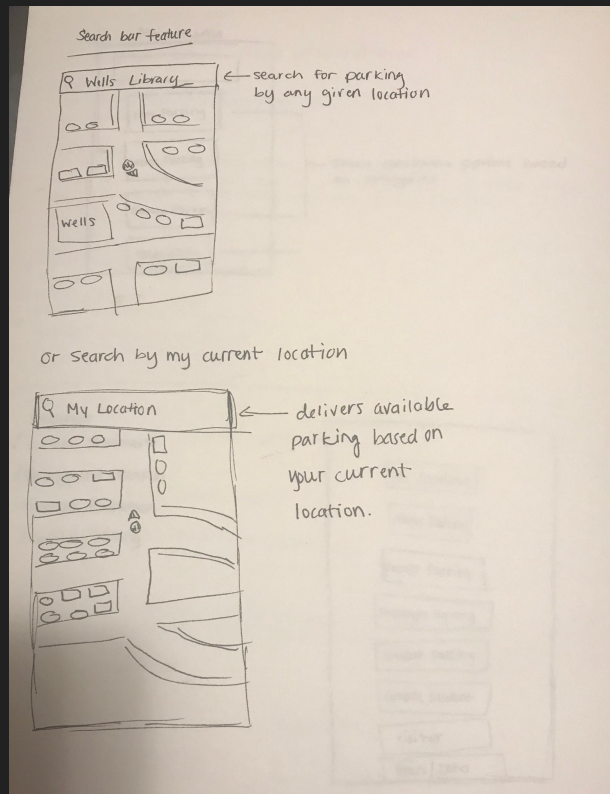 Search bar feature
Wells Library
search for parking
by any given location
Wells
or search by my current location
My Location
delivers available
parking based on
your current
location.